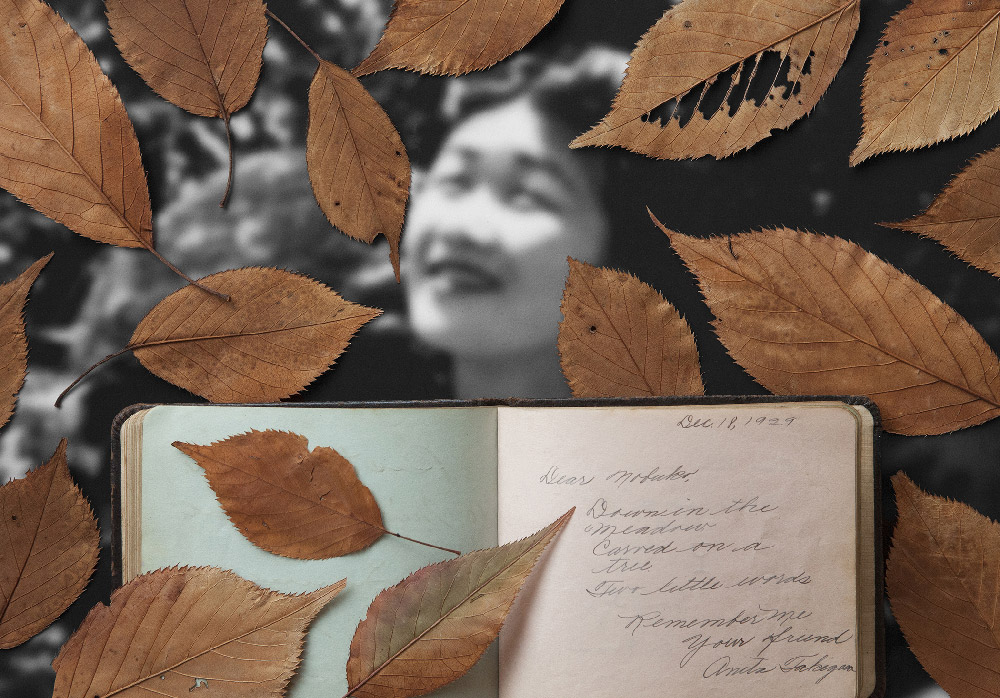 Dec. 18, 1929
Dear Nobuko,
Down in the
meadow
Carved on a
tree
Two little words
Remember me
Your friend
Anita